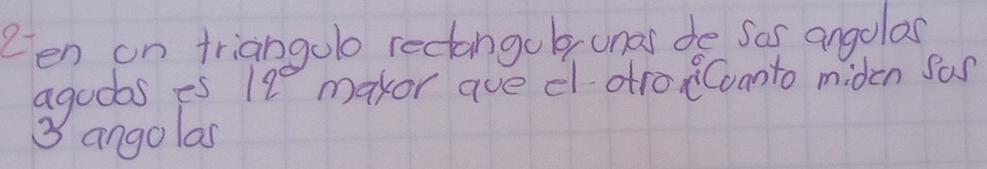 2- en un triangulo rectangulo, unas de sus angulas
agudas es 12° mayor que el otro ¿Cuanto miden sus
3 angulas